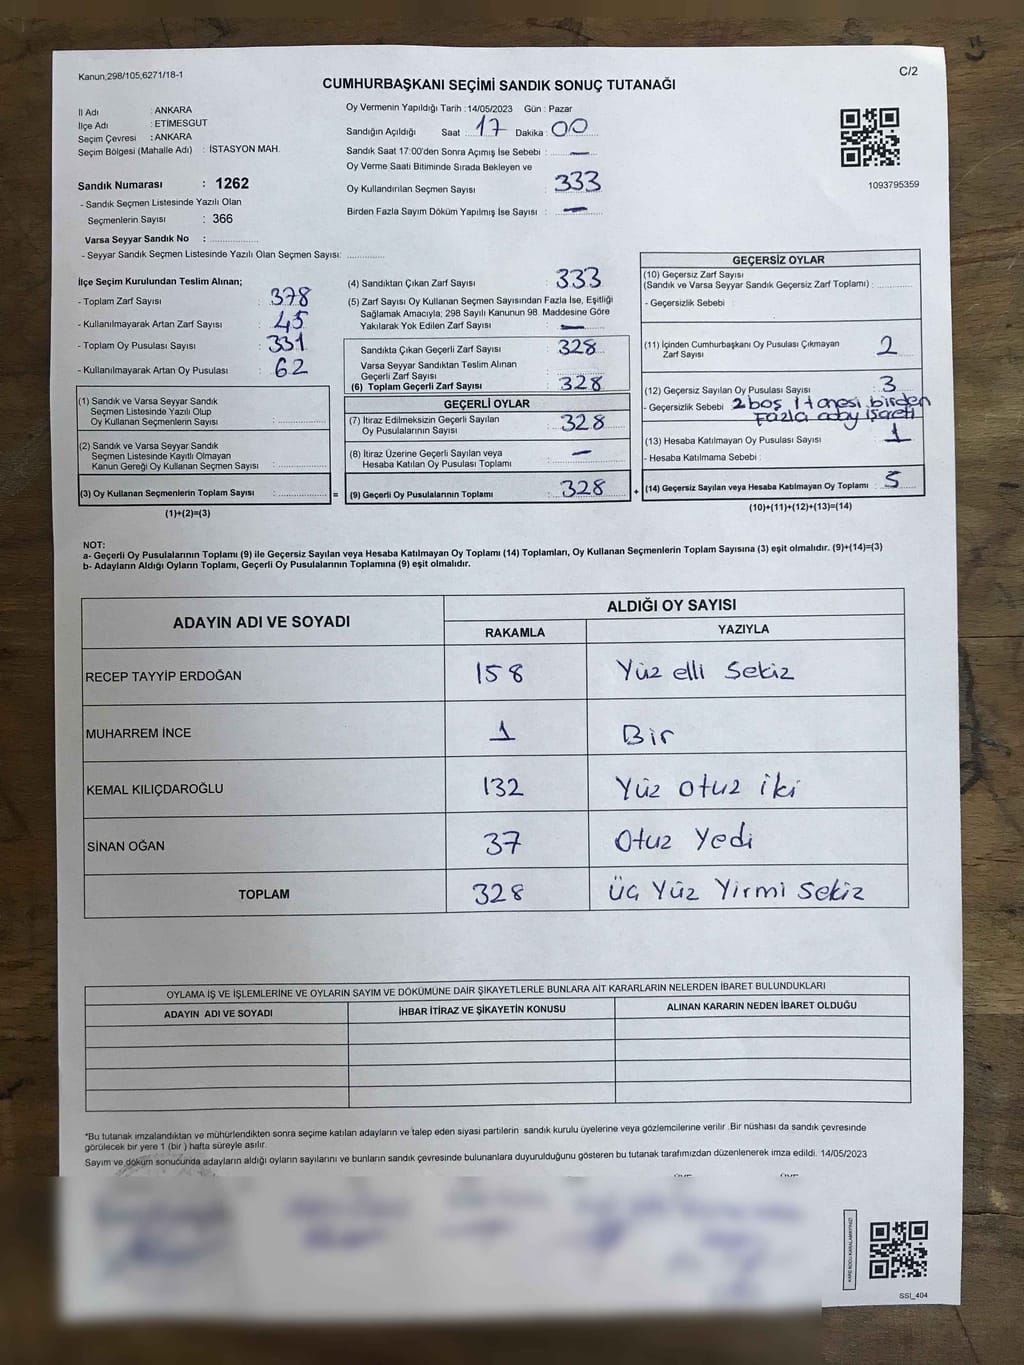 Kanun,298/105,6271/18-1
C/2
CUMHURBAŞKANI SEÇİMİ SANDIK SONUÇ TUTANAĞI
İl Adı : ANKARA
İlçe Adı : ETİMESGUT
Seçim Çevresi : ANKARA
Seçim Bölgesi (Mahalle Adı) : İSTASYON MAH.
Sandık Numarası : 1262
- Sandık Seçmen Listesinde Yazılı Olan
Seçmenlerin Sayısı : 366
Varsa Seyyar Sandık No :
- Seyyar Sandık Seçmen Listesinde Yazılı Olan Seçmen Sayısı:
Oy Vermenin Yapıldığı Tarih :14/05/2023 Gün : Pazar
Sandığın Açıldığı Saat : 17 Dakika : 00
Sandık Saat 17:00'den Sonra Açımış İse Sebebi : —
Oy Verme Saati Bitiminde Sırada Bekleyen ve
Oy Kullandırılan Seçmen Sayısı : 333
Birden Fazla Sayım Döküm Yapılmış İse Sayısı : —
1093795359
İlçe Seçim Kurulundan Teslim Alınan;
- Toplam Zarf Sayısı : 378
- Kullanılmayarak Artan Zarf Sayısı : 45
- Toplam Oy Pusulası Sayısı : 331
- Kullanılmayarak Artan Oy Pusulası : 62
(1) Sandık ve Varsa Seyyar Sandık
Seçmen Listesinde Yazılı Olup
Oy Kullanan Seçmenlerin Sayısı :
(2) Sandık ve Varsa Seyyar Sandık
Seçmen Listesinde Kayıtlı Olmayan
Kanun Gereği Oy Kullanan Seçmen Sayısı :
(3) Oy Kullanan Seçmenlerin Toplam Sayısı :
(1)+(2)=(3)
=
(4) Sandıktan Çıkan Zarf Sayısı : 333
(5) Zarf Sayısı Oy Kullanan Seçmen Sayısından Fazla İse, Eşitliği
Sağlamak Amacıyla; 298 Sayılı Kanunun 98. Maddesine Göre
Yakılarak Yok Edilen Zarf Sayısı : —
Sandıkta Çıkan Geçerli Zarf Sayısı : 328
Varsa Seyyar Sandıktan Teslim Alınan
Geçerli Zarf Sayısı :
(6) Toplam Geçerli Zarf Sayısı : 328
GEÇERLİ OYLAR
(7) İtiraz Edilmeksizin Geçerli Sayılan
Oy Pusulalarının Sayısı : 328
(8) İtiraz Üzerine Geçerli Sayılan veya
Hesaba Katılan Oy Pusulası Toplamı : —
(9) Geçerli Oy Pusulalarının Toplamı : 328
+
GEÇERSİZ OYLAR
(10) Geçersiz Zarf Sayısı
(Sandık ve Varsa Seyyar Sandık Geçersiz Zarf Toplamı) :
- Geçersizlik Sebebi :
(11) İçinden Cumhurbaşkanı Oy Pusulası Çıkmayan
Zarf Sayısı : 2
(12) Geçersiz Sayılan Oy Pusulası Sayısı : 3
- Geçersizlik Sebebi 2 boş 1 tanesi birden
Fazla aday işareti
(13) Hesaba Katılmayan Oy Pusulası Sayısı : 1
- Hesaba Katılmama Sebebi :
(14) Geçersiz Sayılan veya Hesaba Katılmayan Oy Toplamı : 5
(10)+(11)+(12)+(13)=(14)
NOT:
a- Geçerli Oy Pusulalarının Toplamı (9) ile Geçersiz Sayılan veya Hesaba Katılmayan Oy Toplamı (14) Toplamları, Oy Kullanan Seçmenlerin Toplam Sayısına (3) eşit olmalıdır. (9)+(14)=(3)
b- Adayların Aldığı Oyların Toplamı, Geçerli Oy Pusulalarının Toplamına (9) eşit olmalıdır.
ADAYIN ADI VE SOYADI
ALDIĞI OY SAYISI
RAKAMLA YAZIYLA
RECEP TAYYİP ERDOĞAN 158 Yüz elli Sekiz
MUHARREM İNCE 1 Bir
KEMAL KILIÇDAROĞLU 132 Yüz otuz iki
SİNAN OĞAN 37 Otuz Yedi
TOPLAM 328 üç Yüz Yirmi Sekiz
OYLAMA İŞ VE İŞLEMLERİNE VE OYLARIN SAYIM VE DÖKÜMÜNE DAİR ŞİKAYETLERLE BUNLARA AİT KARARLARIN NELERDEN İBARET BULUNDUKLARI
ADAYIN ADI VE SOYADI İHBAR İTİRAZ VE ŞİKAYETİN KONUSU ALINAN KARARIN NEDEN İBARET OLDUĞU
*Bu tutanak imzalandıktan ve mühürlendikten sonra seçime katılan adayların ve talep eden siyasi partilerin sandık kurulu üyelerine veya gözlemcilerine verilir .Bir nüshası da sandık çevresinde
görülecek bir yere 1 (bir ) hafta süreyle asılır.
Sayım ve döküm sonucunda adayların aldığı oyların sayılarını ve bunların sandık çevresinde bulunanlara duyurulduğunu gösteren bu tutanak tarafımızdan düzenlenerek imza edildi. 14/05/2023
KARE KODU KARALAMAYINIZ!
SSİ_404